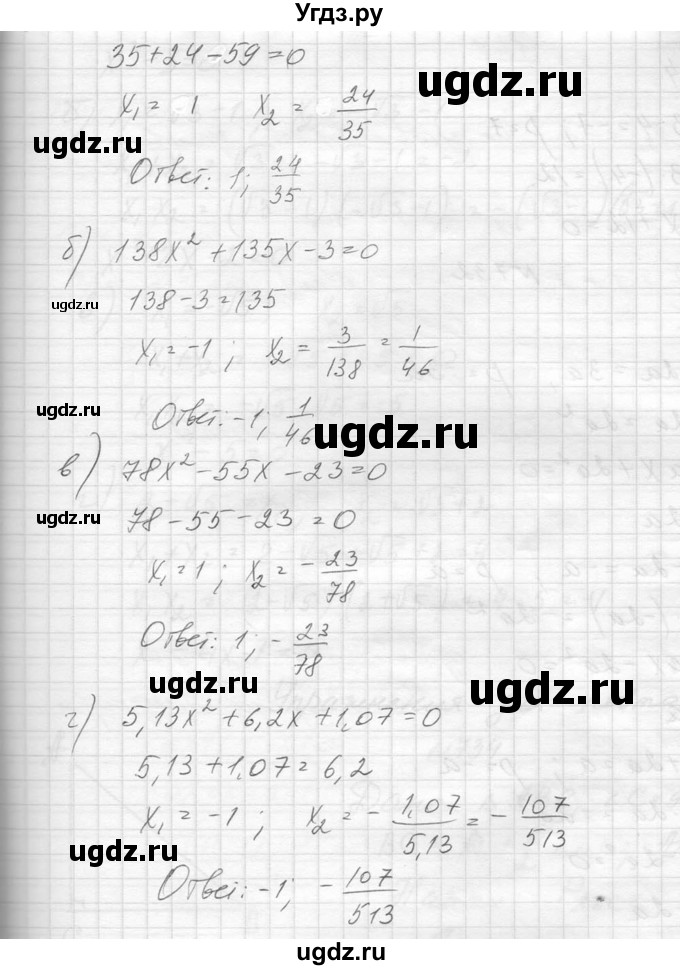 Угдз.ру
35+24-59=0
ugdz.ru
x₁= 1 x₂= 24/35
ugdz.ru
Ответ: 1; 24/35
ugdz.ru
б) 138x²+135x-3=0
ugdz.ru
138-3=135
x₁=-1; x₂= 3/138 = 1/46
ugdz.ru
Ответ: -1; 1/46
ugdz.ru
в) 78x²-55x-23=0
ugdz.ru
78-55-23=0
x₁=1; x₂=- 23/78
ugdz.ru
Ответ: 1; - 23/78
ugdz.ru
ugdz.ru
г) 5,13x²+6,2x+1,07=0
5,13+1,07=6,2
x₁=-1; x₂=- 1,07/5,13 = - 107/513
ugdz.ru
ugdz.ru
Ответ: -1; - 107/513
ugdz.ru